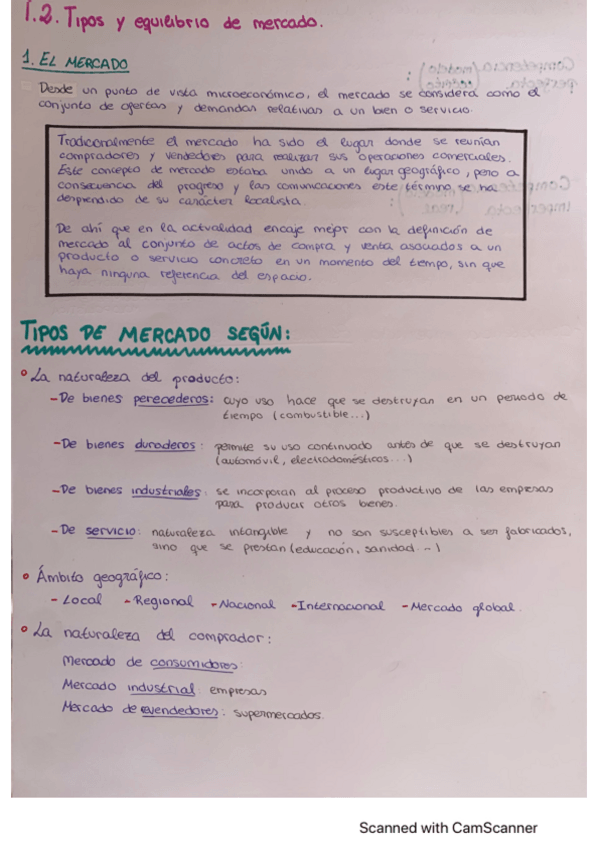 1.2. Tipos y equilibrio de mercado.
1. EL MERCADO
Desde un punto de vista microeconómico, el mercado se considera como el
conjunto de ofertas y demandas relativas a un bien o servicio.
Tradicionalmente el mercado ha sido el lugar donde se reunían
compradores y vendedores para realizar sus operaciones comerciales.
Este concepto de mercado estaba unido a un lugar geográfico, pero a
consecuencia del progreso y las comunicaciones este término se ha
desprendido de su carácter localista.
De ahí que en la actualidad encaje mejor con la definición de
mercado al conjunto de actos de compra y venta asociados a un
producto o servicio concreto en un momento del tiempo, sin que
haya ninguna referencia del espacio.
TIPOS DE MERCADO SEGÚN:
° La naturaleza del producto:
- De bienes perecederos: cuyo uso hace que se destruyan en un periodo de
tiempo (combustible...)
- De bienes duraderos: permite su uso continuado antes de que se destruyan
(automóvil, electrodomésticos...)
- De bienes industriales: se incorporan al proceso productivo de las empresas
para producir otros bienes.
- De servicio: naturaleza intangible y no son susceptibles a ser fabricados,
sino que se prestan (educación, sanidad...)
° Ámbito geográfico:
- Local - Regional - Nacional - Internacional - Mercado global.
° La naturaleza del comprador:
Mercado de consumidores
Mercado industrial: empresas
Mercado de revendedores: supermercados.
Scanned with CamScanner